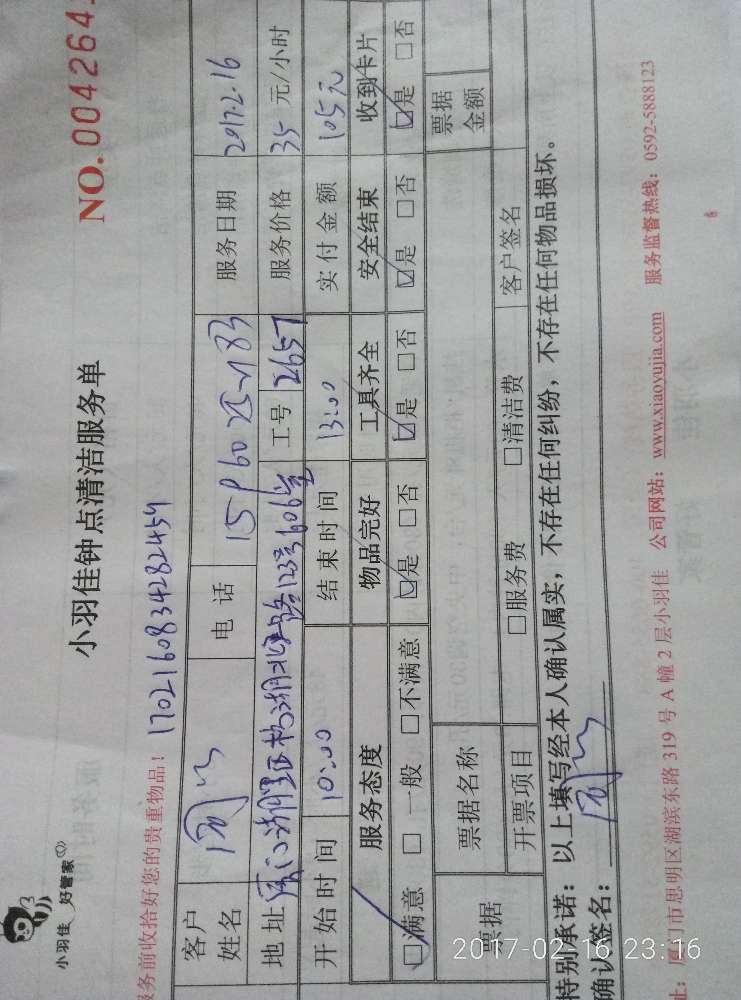 小羽佳 好管家
小羽佳钟点清洁服务单
NO.004264
服务前收拾好您的贵重物品! 1702160834282454
客户姓名 电话 服务日期 2017.2.16
地址 工号 2657 服务价格 35 元/小时
开始时间 10:00 结束时间 13:00 实付金额 105元
服务态度 物品完好 工具齐全 安全结束 收到卡片
☑满意 □ 一般 □不满意 ☑是 □否 ☑是 □否 ☑是 □否 ☑是 □否
票据 票据名称 票据金额
开票项目 □服务费 □清洁费 客户签名
特别承诺：以上填写经本人确认属实，不存在任何纠纷，不存在任何物品损坏。
确认签名：
址：厦门市思明区湖滨东路 319 号 A 幢 2 层小羽佳 公司网站：www.xiaoyujia.com 服务监督热线：0592-5888123
2017-02-16 23:16